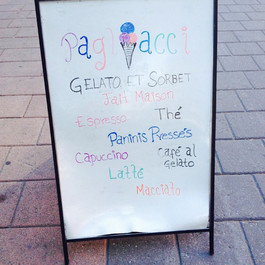 Pagliacci
GELATO ET SORBET
Fait Maison
Espresso Thé
Paninis Pressés
Capuccino Café al Gelato
Latté
Macciato